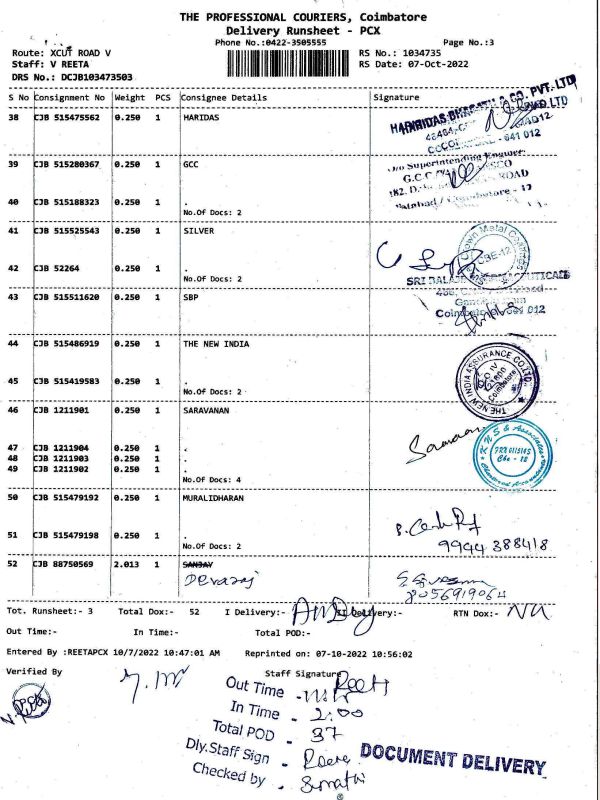 THE PROFESSIONAL COURIERS, Coimbatore
Delivery Runsheet - PCX
Phone No.:0422-3505555 Page No.:3
Route: XCUT ROAD V RS No.: 1034735
Staff: V REETA RS Date: 07-Oct-2022
DRS No.: DCJB103473503
S No Consignment No Weight PCS Consignee Details Signature
38 CJB 515475562 0.250 1 HARIDAS
CO. PVT. LTD
641 012
39 CJB 515280367 0.250 1 GCC
O/o Superintending Engineer
ROAD
40 CJB 515188323 0.250 1 .
No.Of Docs: 2
41 CJB 515525543 0.250 1 SILVER
Crown Metal Coatings
CBE-12
42 CJB 52264 0.250 1 .
No.Of Docs: 2
43 CJB 515511620 0.250 1 SBP
44 CJB 515486919 0.250 1 THE NEW INDIA
THE NEW INDIA ASSURANCE CO.LTD.
Coimbatore
45 CJB 515419583 0.250 1 .
No.Of Docs: 2
46 CJB 1211901 0.250 1 SARAVANAN
47 CJB 1211904 0.250 1 .
48 CJB 1211903 0.250 1 .
49 CJB 1211902 0.250 1 .
No.Of Docs: 4
K N S & Associates
Cbe - 12
Chartered Accountants
50 CJB 515479192 0.250 1 MURALIDHARAN
51 CJB 515479198 0.250 1 .
No.Of Docs: 2
9944 388418
52 CJB 88750569 2.013 1 SANJAY
Devaraj
8056919064
Tot. Runsheet:- 3 Total Dox:- 52 I Delivery:- II Delivery:- RTN Dox:-
Out Time:- In Time:- Total POD:-
Entered By :REETAPCX 10/7/2022 10:47:01 AM Reprinted on: 07-10-2022 10:56:02
Verified By Staff Signature
Out Time - Reeta
In Time - 2:00
Total POD - 37
Dly.Staff Sign - Reeta
Checked by - Sumathi
DOCUMENT DELIVERY